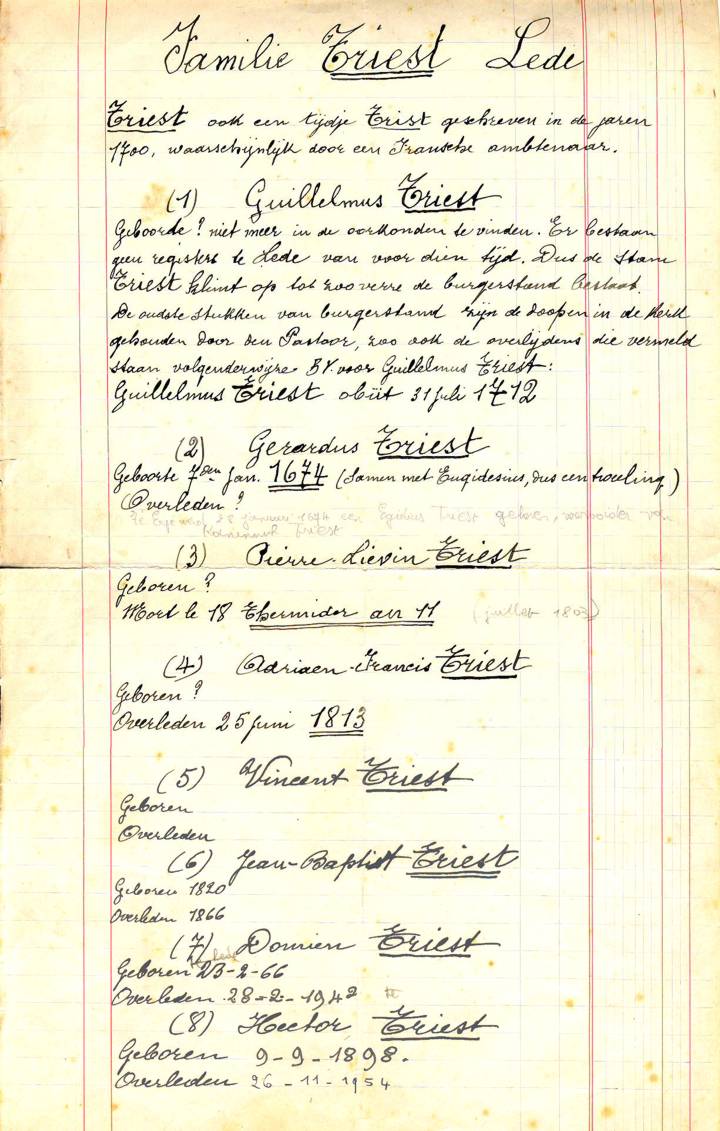 Familie Triest Lede
Triest ook een tijdje Trist geschreven in de jaren
1700, waarschijnlijk door een Fransche ambtenaar.
(1) Guillelmus Triest
Geboorte? niet meer in de oorkonden te vinden. Er bestaan
geen registers te Lede van voor dien tijd. Dus de stam
Triest klimt op tot zoo verre de burgerstand bestaat.
De oudste stukken van burgerstand zijn de doopen in de kerk
gehouden door den Pastoor, zoo ook de overlijdens die vermeld
staan volgenderwijze BV. voor Guillelmus Triest:
Guillelmus Triest obiit 31 juli 1712
(2) Gerardus Triest
Geboorte 7den Jan. 1674 (Samen met Eugidesius, dus een tweeling)
Overleden?
28 januari 1674 een Egidius Triest geboren, voorvader van
Triest
(3) Pierre-Lievin Triest
Geboren?
Mort le 18 Thermidor an 11 (juillet 1803)
(4) Adriaen-Francis Triest
Geboren?
Overleden 25 juni 1813
(5) Vincent Triest
Geboren
Overleden
(6) Jean-Baptist Triest
Geboren 1820
Overleden 1866
(7) Domien Triest
te Lede
Geboren 23-2-66
Overleden 28-2-1942 te
(8) Hector Triest
Geboren 9-9-1898.
Overleden 26-11-1954